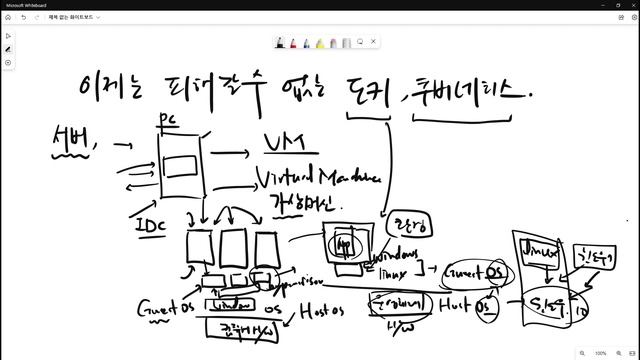 Microsoft Whiteboard
제목 없는 화이트보드
이제는 피해갈수 없는 도커, 쿠버네티스.
서버,
PC
VM
Virtual Machine
가상머신.
IDC
App
환경
windows
linux
Guest OS
Guest OS
window
OS
Host OS
컴퓨터 H/W
Host OS
H/W
linux
100%